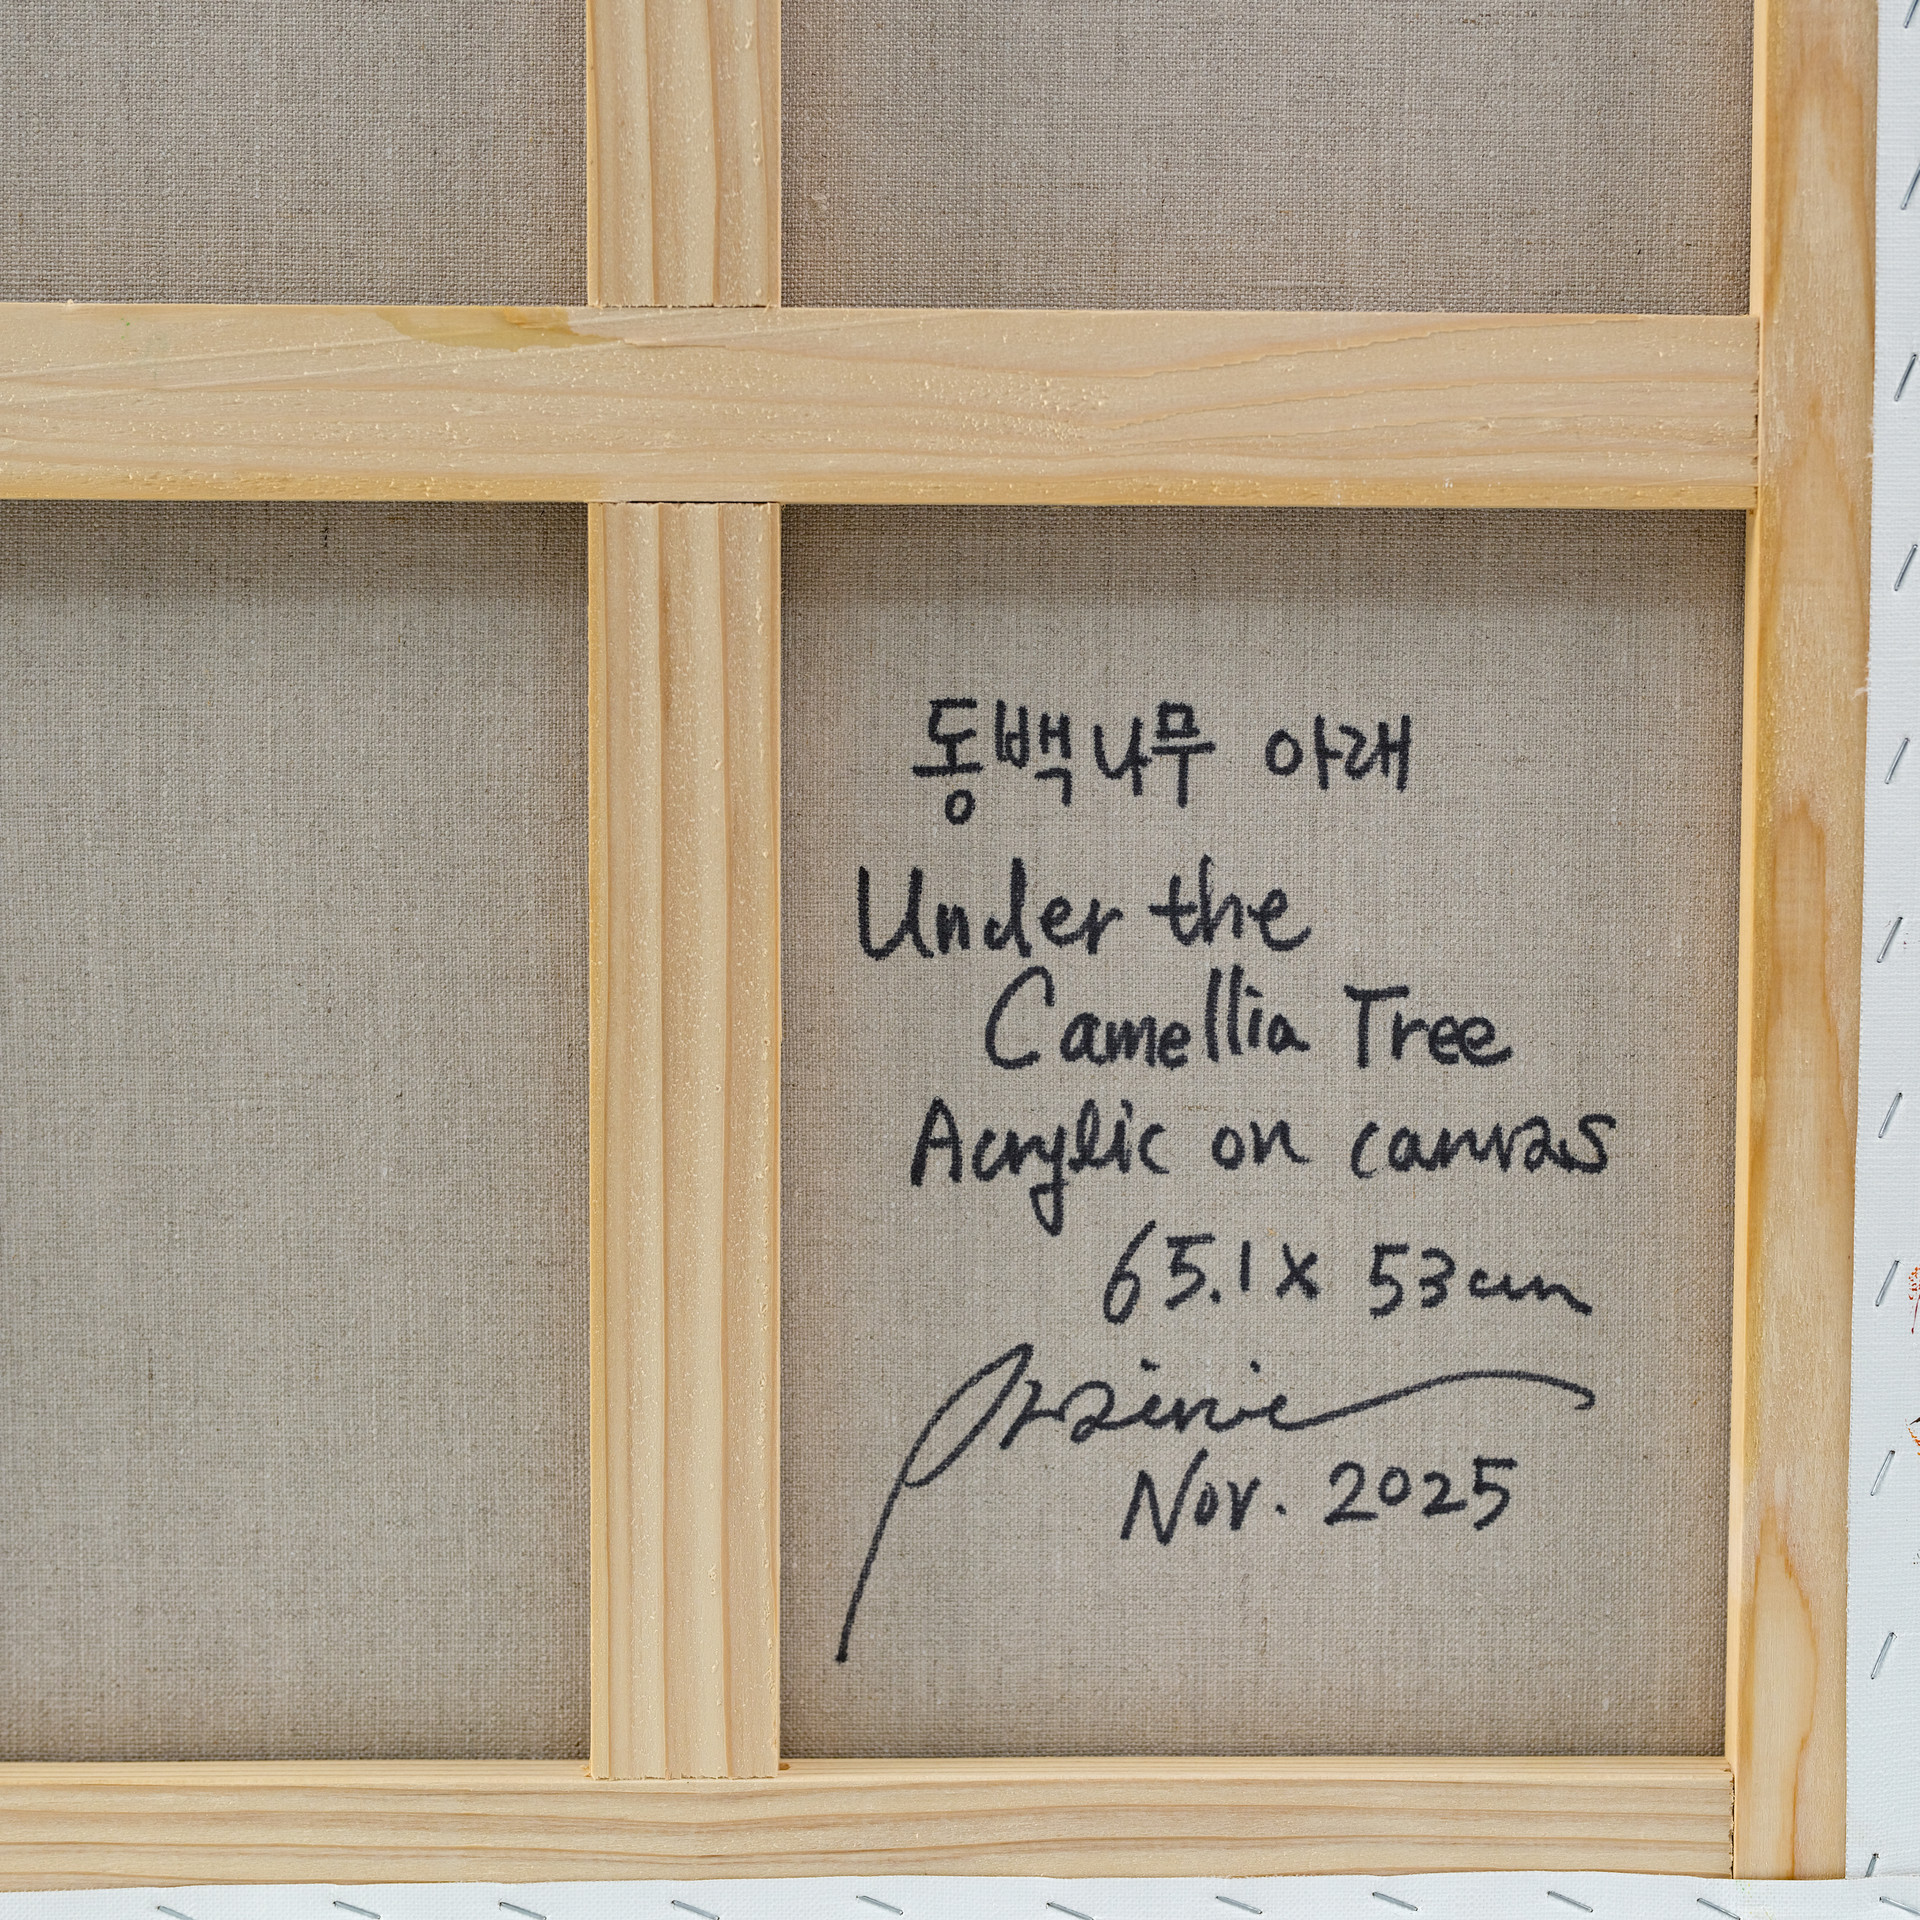 동백나무 아래
Under the
Camellia Tree
Acrylic on canvas
65.1 x 53cm
Nov. 2025